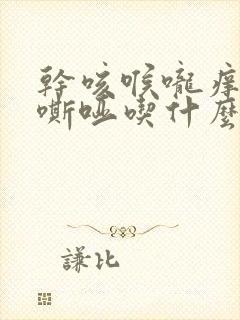 幹咳喉嚨痒
嘶啞喫什麼
謙比